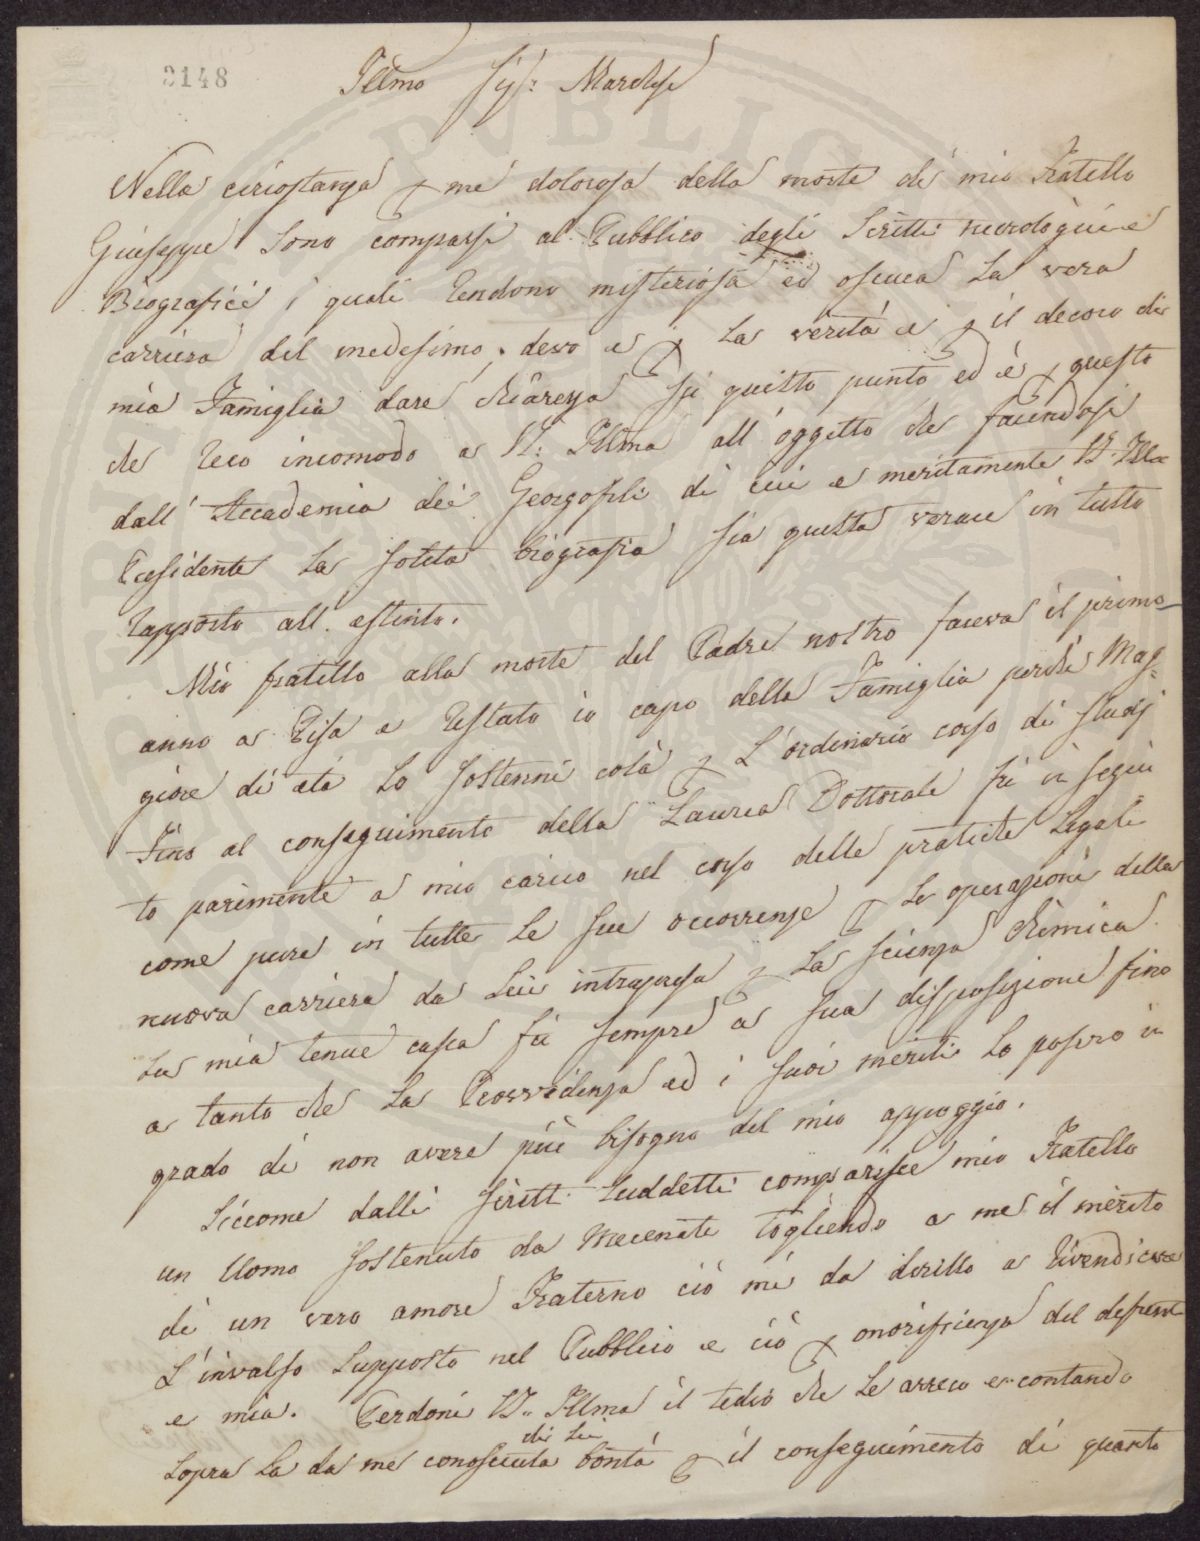 3148
Illmo Sig: Marchese
Nella ciriostanza p me dolorosa della morte di mio Fratello
Giuseppe sono comparsi al Pubblico degli Scritti necrologici e
Biografici i quali rendono misteriosa ed oscura la vera
carriera del medesimo; devo e p la verità e p il decoro di
mia Famiglia dare chiarezza su quisto punto ed è p questo
che reco incomodo a V: Illma all' oggetto che facendosi
dall' Accademia dei Georgofili di cui e meritamente V.S. Illa
Presidente la solita biografia sia questa verace in tutto
rapporto all' estinto.
Mio fratello alla morte del Padre nostro faceva il primo
anno a Pisa e restato io capo della Famiglia perchè Mag=
giore di età lo sostenni colà p l'ordinario corso di studj
Fino al conseguimento della Laurea Dottorale fù in segui
to parimente a mio carico nel corso delle pratiche legali
come pure in tutte le sue occorrenze p le operazioni della
nuova carriera da Lui intrapresa p la scienza chimica.
La mia tenue cassa fù sempre a sua disposizione fino
a tanto che la Provvidenza ed i suoi meriti lo posero in
grado di non avere più bisogno del mio appoggio.
Siccome dalli scritti suddetti comparisce mio Fratello
un Uomo sostenuto da Mecenati togliendo a me il merito
di un vero amore Fraterno ciò mi da diritto a rivendicare
l'invalso supposto nel Pubblico e ciò p onorificienza del defunto
e mia. Perdoni V.S. Illma il tedio che Le arreco e contando
di Lei
sopra la da me conosciuta bontà p il conseguimento di quanto